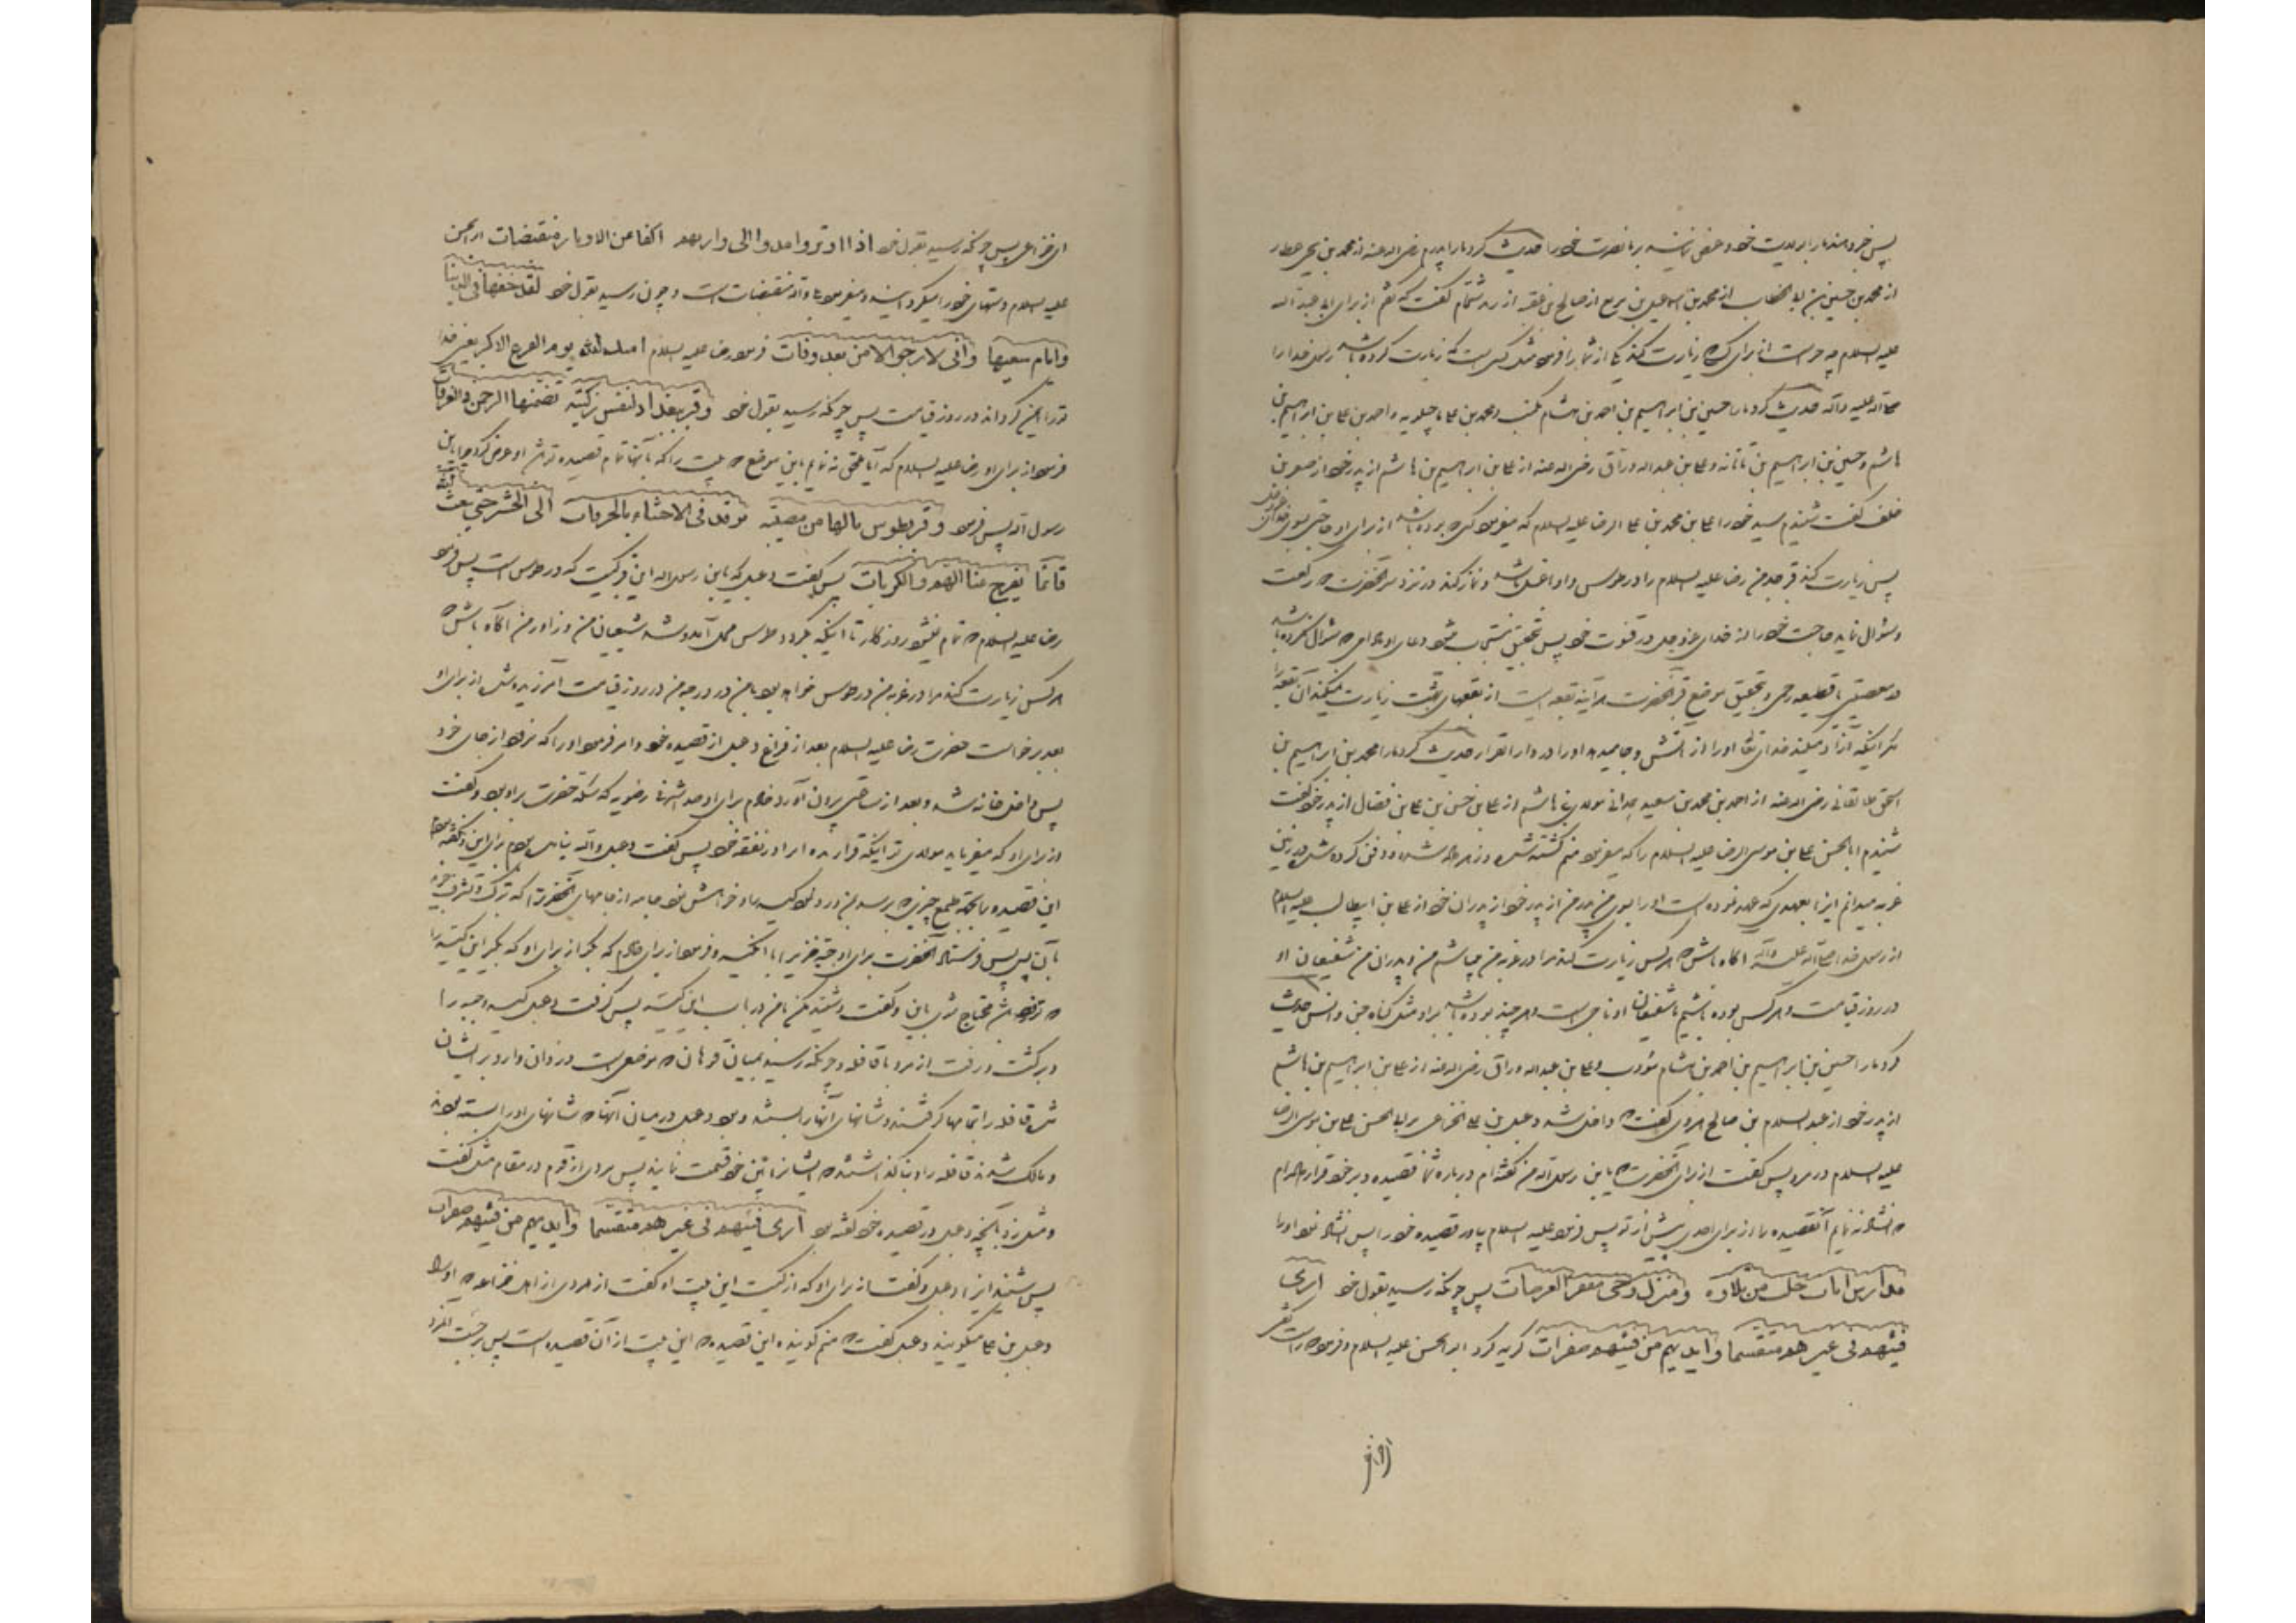 از محمد بن حسین بن ابی الخطاب از محمد بن اسماعیل بن بزیع از صالح بن عقبه از زید شحام گفت که گفتم از برای ابی عبد الله
علیه السلام چه چیز است از برای کسی که زیارت کند یکی از شما را فرمود مثل کسی است که زیارت کرده باشد رسول خدا را
صلی الله علیه و آله حدیث کرد ما را حسین بن ابراهیم بن احمد بن هشام مکتب و محمد بن علی ماجیلویه و احمد بن علی بن ابراهیم بن
هاشم و حسین بن ابراهیم بن ناتانه و علی بن عبد الله وراق رضی الله عنه از علی بن ابراهیم بن هاشم از پدر خود از صقر بن
خلف گفت شنیدم سید خود را علی بن محمد بن علی الرضا علیه السلام که میفرمود کسی که بوده باشد از برای او حاجتی بسوی
پس زیارت کند قبر جد من رضا علیه السلام را در طوس و او با غسل باشد و نماز کند در نزد سر آنحضرت دو رکعت
و سؤال نماید حاجت خود را از خدای عز و جل در قنوت خود پس بتحقیق مستجاب میشود دعای او مادامی که سؤال نکرده باشد
در معصیتی یا قطیعه رحمی و بتحقیق موضع قبر آنحضرت هر آینه بقعه ایست از بقعهای بهشت زیارت نمیکند آن بقعه را
مگر اینکه آزاد میکند خدای تعالی او را از آتش و جا میدهد او را در دار القرار حدیث کرد ما را محمد بن ابراهیم بن
اسحق طالقانی رضی الله عنه از احمد بن محمد بن سعید همدانی مولی بنی هاشم از علی بن حسن بن علی بن فضال از پدر خود گفت
شنیدم ابا الحسن علی بن موسی الرضا علیه السلام را که میفرمود منم کشته شده و زهر داده شده و دفن کرده شده در زمین
غربه میدانم اینرا بعهدی که عهد نموده است او را بسوی من پدر من از پدر خود از پدران خود از علی بن ابیطالب علیه السلام
از رسول خدا صلی الله علیه و آله آگاه باش که هر کس زیارت کند مرا در غربه من میباشم من و پدران من شفیعان او
در روز قیامت و هر کس بوده باشیم ما شفیعان او ناجی است و هر چند بوده باشد بر او مثل گناه جن و انس حدیث
کرد ما را حسین بن ابراهیم بن احمد بن هشام مؤدب و علی بن عبد الله وراق رضی الله عنه از علی بن ابراهیم بن هاشم
از پدر خود از عبد السلام بن صالح هروی گفت که داخل شد دعبل بن علی الخزاعی بر ابا الحسن علی بن موسی الرضا
علیه السلام در مرو پس گفت از برای آنحضرت که یا بن رسول الله من گفته ام درباره شما قصیده و بر خود قرار داده ام
که انشاد ننمایم آنقصیده را از برای احدی پیش از تو پس فرمود علیه السلام بیاور قصیده خود را پس انشاد نمود او را
مدارس ایات خلت من تلاوه و منزل وحی مقفر العرصات پس چونکه رسید بقول خود اری
فیئهم فی غیرهم متقسما و ایدیهم من فیئهم صفرات گریه کرد ابو الحسن علیه السلام و فرمود که راست گفتی
ای خزاعی پس چونکه رسید بقول خود اذا اوتروا مدوا الی واتریهم اکفا عن الاوتار منقبضات ابو الحسن
علیه السلام دستهای خود را میگردانید و میفرمود بلی والله منقبضات است و چون رسید بقول خود لقد خفت فی الدنیا
و ایام سعیها و انی لارجو الامن بعد وفات فرمود رضا علیه السلام امنک الله یوم الفزع الاکبر یعنی خدا
ترا ایمن گرداند در روز قیامت پس چونکه رسید بقول خود و قبر ببغداد لنفس زکیة تضمنها الرحمن فی الغرفات
فرمود از برای او رضا علیه السلام که آیا ملحق ننمایم باین موضع دو بیت را که بآنها تمام قصیده تو شود عرض کرد بلی یا بن
رسول الله پس فرمود و قبر بطوس یا لها من مصیبة توقد فی الاحشاء بالحرقات الی الحشر حتی یبعث الله
قائما یفرج عنا الهم و الکربات پس گفت دعبل که یا بن رسول الله این قبر کیست که در طوس است پس فرمود
رضا علیه السلام که تمام نمیشود روزگار تا اینکه بگردد طوس محل آمد و شد شیعیان من و زوار من آگاه باش که
هر کس زیارت کند مرا در غربه من در طوس خواهد بود با من در درجه من در روز قیامت آمرزیده شده از برای او
بعد برخواست حضرت رضا علیه السلام بعد از فراغ دعبل از قصیده خود و امر فرمود او را که نرود از جای خود
پس داخل خانه شد و بعد از ساعتی بیرون آورد خادم برای او صد اشرفی رضویه که سکه حضرت بر او بود و گفت
از برای او که میفرماید مولای تو اینکه قرار بده اینرا در نفقه خود پس گفت دعبل والله نیامده بودم برای این و نگفته بودم
این قصیده را بجهة طمع چیزی که برسد بمن و رد نمود کیسه را و خواهش نمود جامه از جامهای آنحضرت را که تبرک و تشرف جوید
بآن پس فرستاد آنحضرت برای او جبه خزی را با آن کیسه و فرمود از برای خادم که بگو از برای او که بگیر این کیسه را
که تو زود باشد محتاج شوی باین و گفت و شنید مکن با من در باب این کیسه پس گرفت دعبل کیسه و جبه را
و برگشت و رفت از مرو با قافله و چونکه رسید بمیان قوهان که موضعی است دزدان وارد بر ایشان
شده قافله را تمامها گرفتند و شانهای آنها را بستند و بود دعبل در میان آنها که شانهای او را بسته بودند
و مالک شدند قافله را و بنا گذاشتند که ایشانرا بین خود قسمت نمایند پس مردی از قوم در مقام مثل گفت
و مثل زد بآنچه دعبل در قصیده خود گفته بود اری فیئهم فی غیرهم متقسما و ایدیهم من فیئهم صفرات
پس شنید اینرا دعبل و گفت از برای او که از کیست این بیت او گفت از مردی از اهل خزاعه که او را
دعبل بن علی میگویند دعبل گفت که منم گوینده این قصیده که این بیت از آن قصیده است پس برجست آنمرد